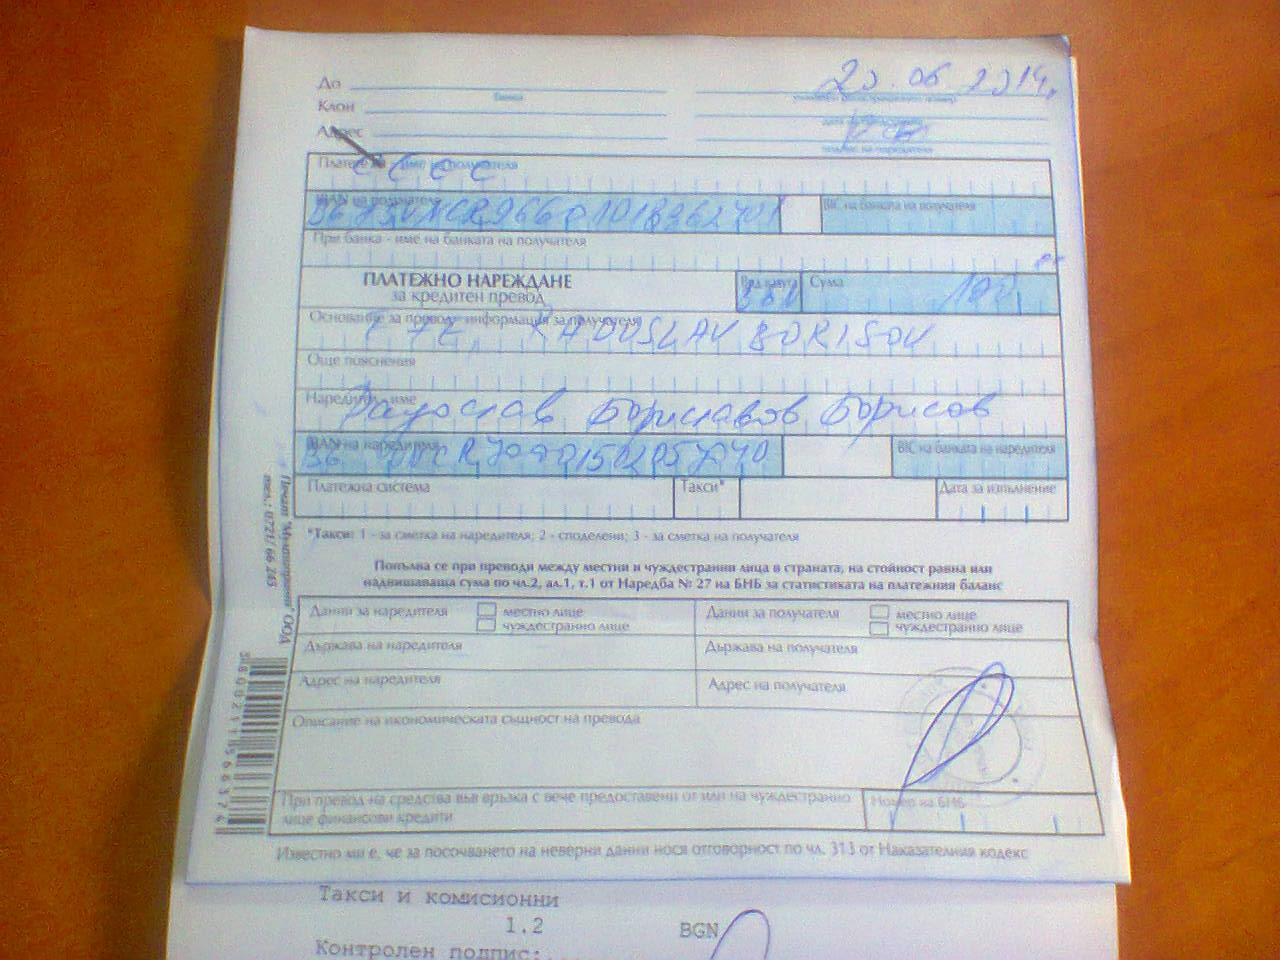 20.06.2014
До
банка
Клон
Адрес
подпис на наредителя
Платете на - име на получателя
С С С С
IBAN на получателя
BIC на банката на получателя
При банка - име на банката на получателя
ПЛАТЕЖНО НАРЕЖДАНЕ
за кредитен превод
Вид валута
Сума
Основание за превод - информация за получателя
RADOSLAV BORISOV
Още пояснения
Наредител - име
Радослав Бориславов Борисов
IBAN на наредителя
BIC на банката на наредителя
Платежна система
Такси*
Дата за изпълнение
*Такси: 1 - за сметка на наредителя; 2 - споделени; 3 - за сметка на получателя
Попълва се при преводи между местни и чуждестранни лица в страната, на стойност равна или
надвишаваща сума по чл.2, ал.1, т.1 от Наредба № 27 на БНБ за статистиката на платежния баланс
Данни за наредителя
местно лице
чуждестранно лице
Данни за получателя
местно лице
чуждестранно лице
Държава на наредителя
Държава на получателя
Адрес на наредителя
Адрес на получателя
Описание на икономическата същност на превода
При превод на средства във връзка с вече предоставени от или на чуждестранно
лице финансови кредити
Номер на БНБ
Известно ми е, че за посочването на неверни данни нося отговорност по чл. 313 от Наказателния кодекс
тел.: 0721/ 66 243
Такси и комисионни
1.2 BGN
Контролен подпис: